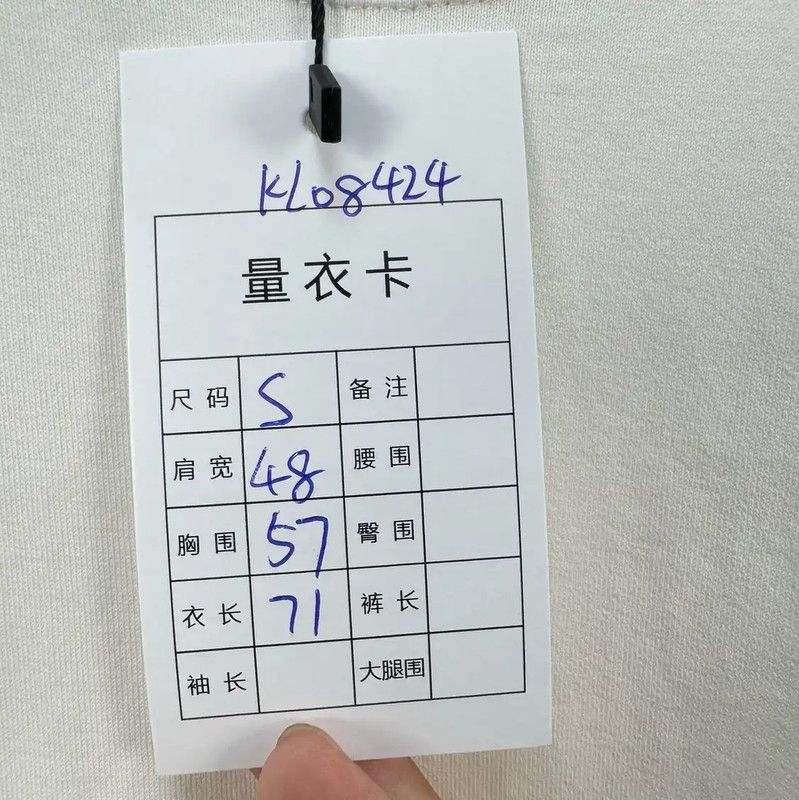 KL08424
量衣卡
尺码 S 备注
肩宽 48 腰围
胸围 57 臀围
衣长 71 裤长
袖长 大腿围